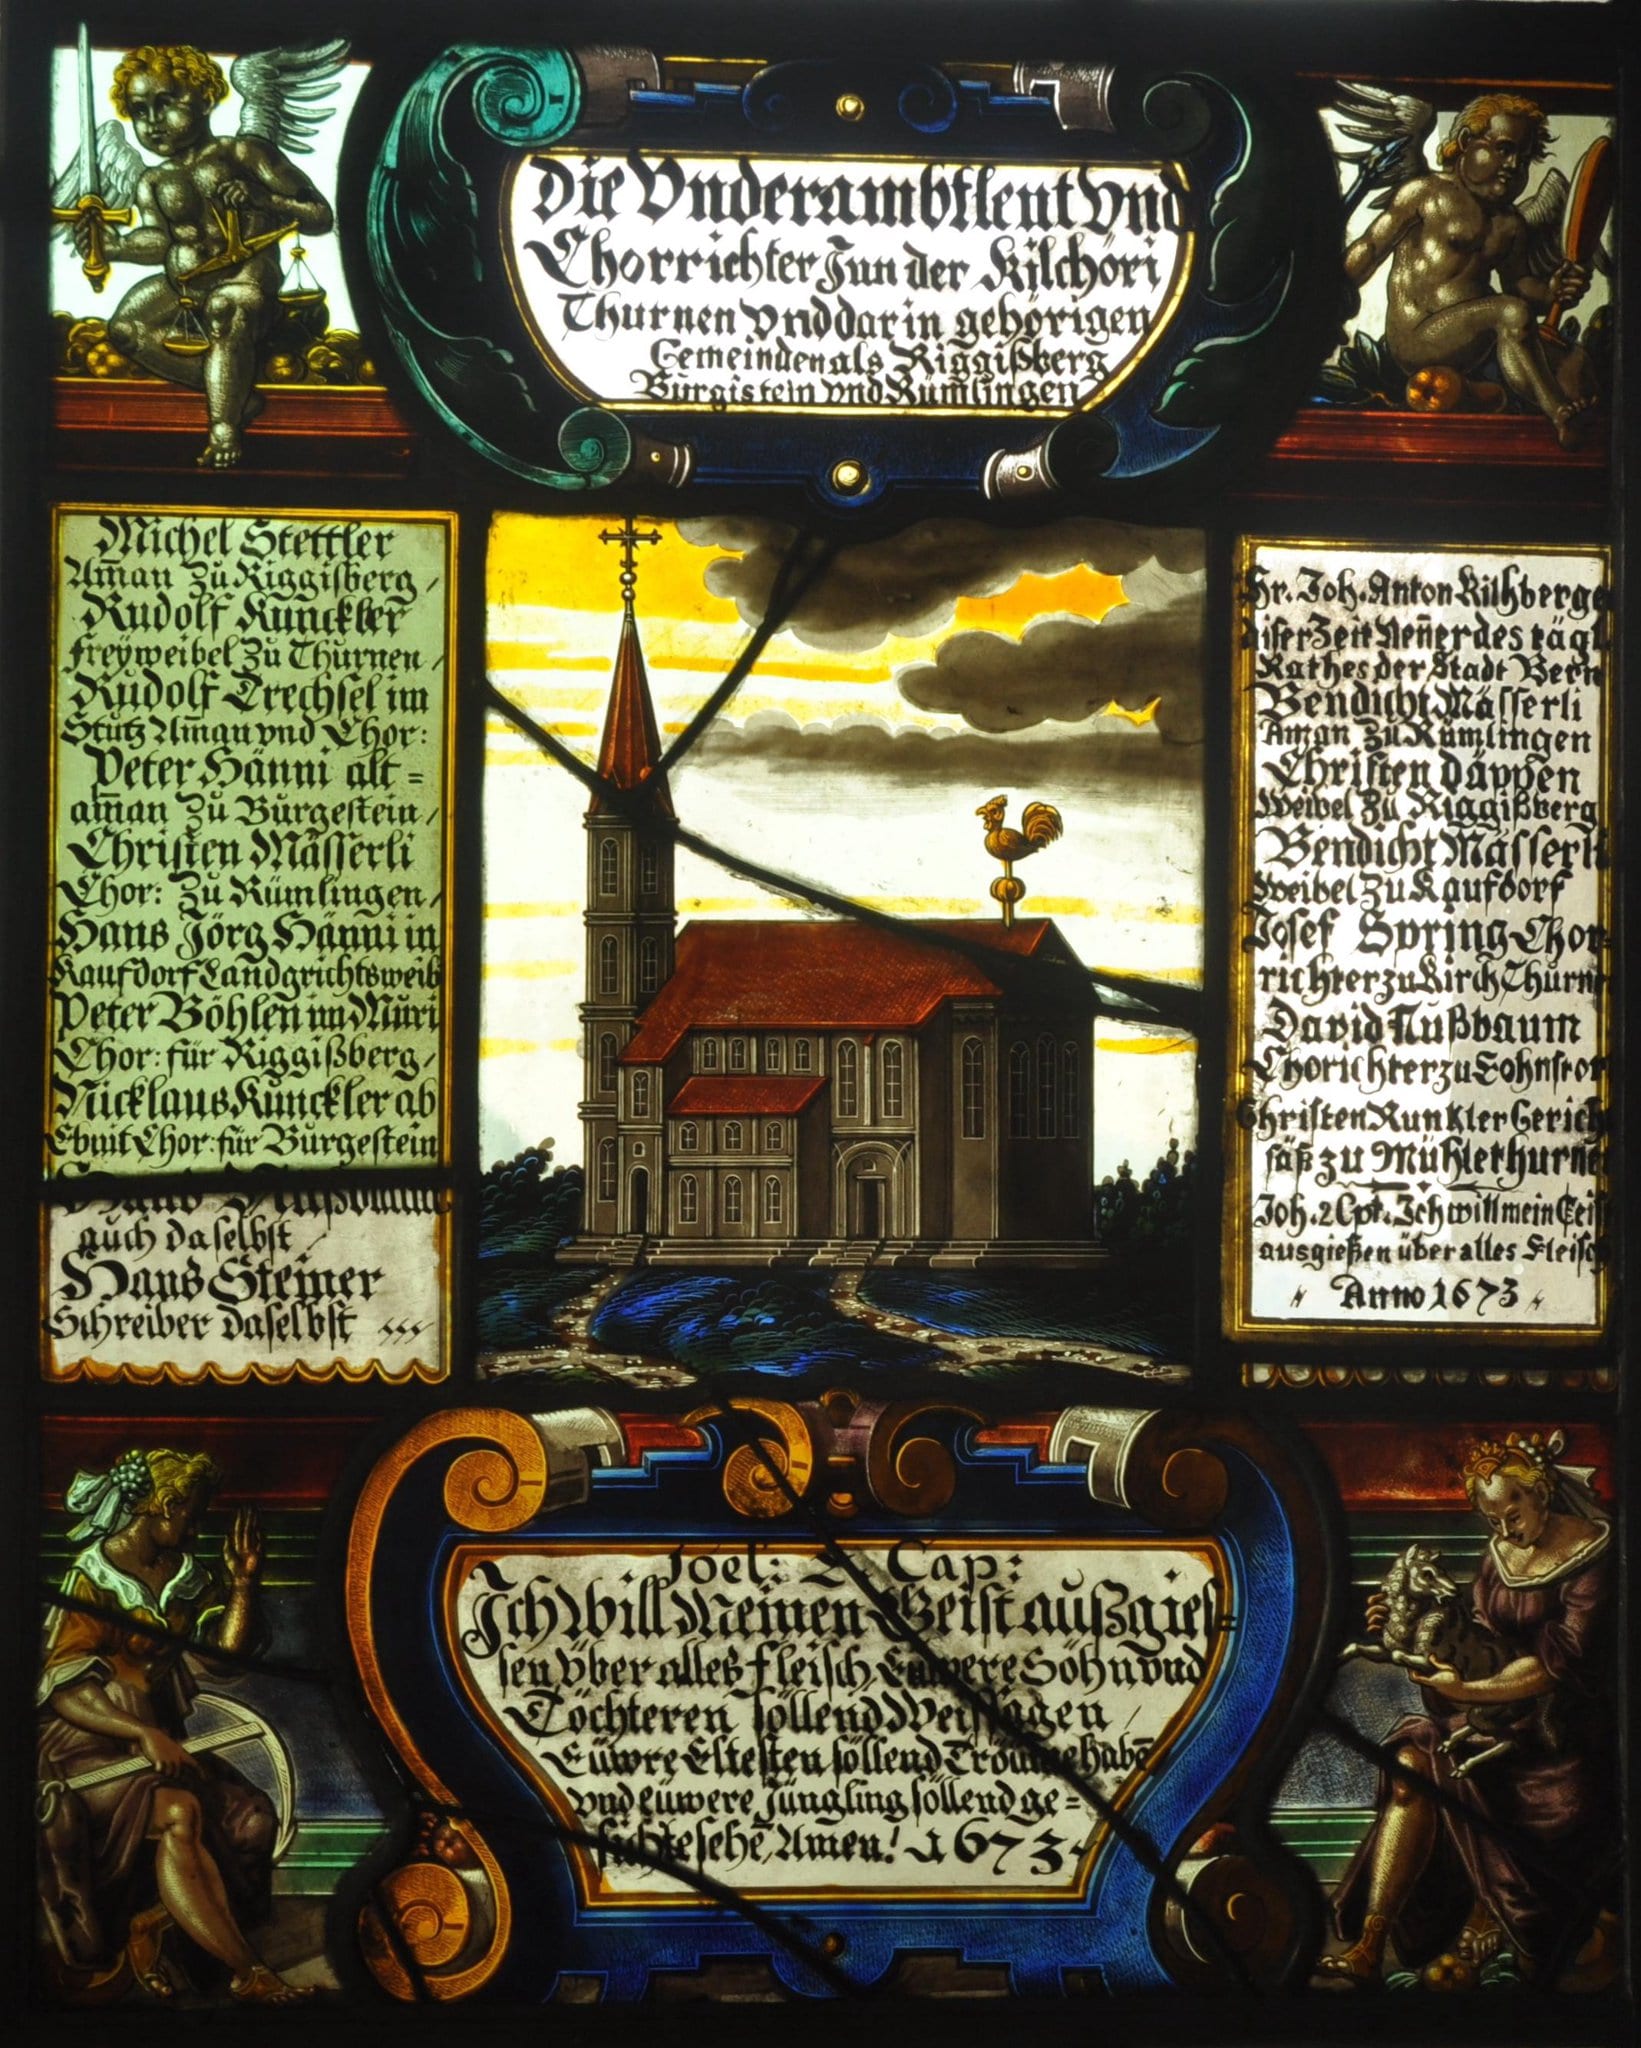 Die Vnderambtlent vnd
Chorrichter Jnn der Kilchöri
Thurnen vnd darin gehörigen
Gemeinden als Riggißberg
Burgistein vnd Rümlingen
Michel Stettler
Am̄an zu Riggisberg /
Rudolf Kunckler
freyweibel zu Thurnen /
Rudolf Trechsel im
Stutz Am̄an vnd Chor:
Peter Hänni alt=
am̄an zu Burgestein /
Christen Mässerli
Chor: zu Rümlingen /
Hans Jörg Hänni in
Kaufdorf Landgrichtsweib
Peter Böhlen im Muri
Chor: für Riggißberg /
Nicklaus Kunckler ab
Ebnit Chor: für Burgestein
auch daselbst /
Hans Steiner
Schreiber daselbst
Hr. Joh. Anton Kilchberge
diser Zeit Nen̄er des tägl
Rathes der Stadt Bern
Bendicht Mässerli
Am̄an zu Rümlingen
Christen Däppen
Weibel zu Riggißberg
Bendicht Mässerli
Weibel zu Kaufdorf
Josef Spring Chor=
richter zu Kirch Thurne
David Nußbaum
Chorichter zu Lohnstor
Christen Runkler Gerich
säß zu Mühlethurne
Joh. 2 Cpt. Ich will mein Geist
ausgießen über alles Fleisch
Anno 1673
Joel: 2. Cap:
Ich Will Meinen Geist außgies=
sen Vber alles fleisch, Euwere Söhn vnd
Töchteren söllend Weissagen /
Eüwre Eltesten söllend Tröume habē
vnd eüwere Jüngling söllend ge=
sichte sehē, Amen! 1673.